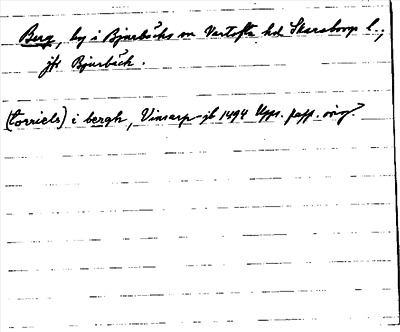 Berg, by i Bjurbäcks sn Vartofta hd Skaraborgs l.,
jfr Bjurbäck.
(torriels) i bergh, Vinsarp-jb 1494 Upps. papp. orig.